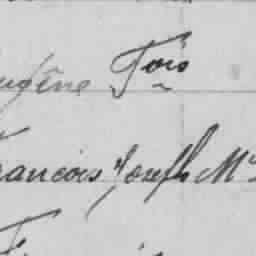 ugêne Fois
rancois Joseph M